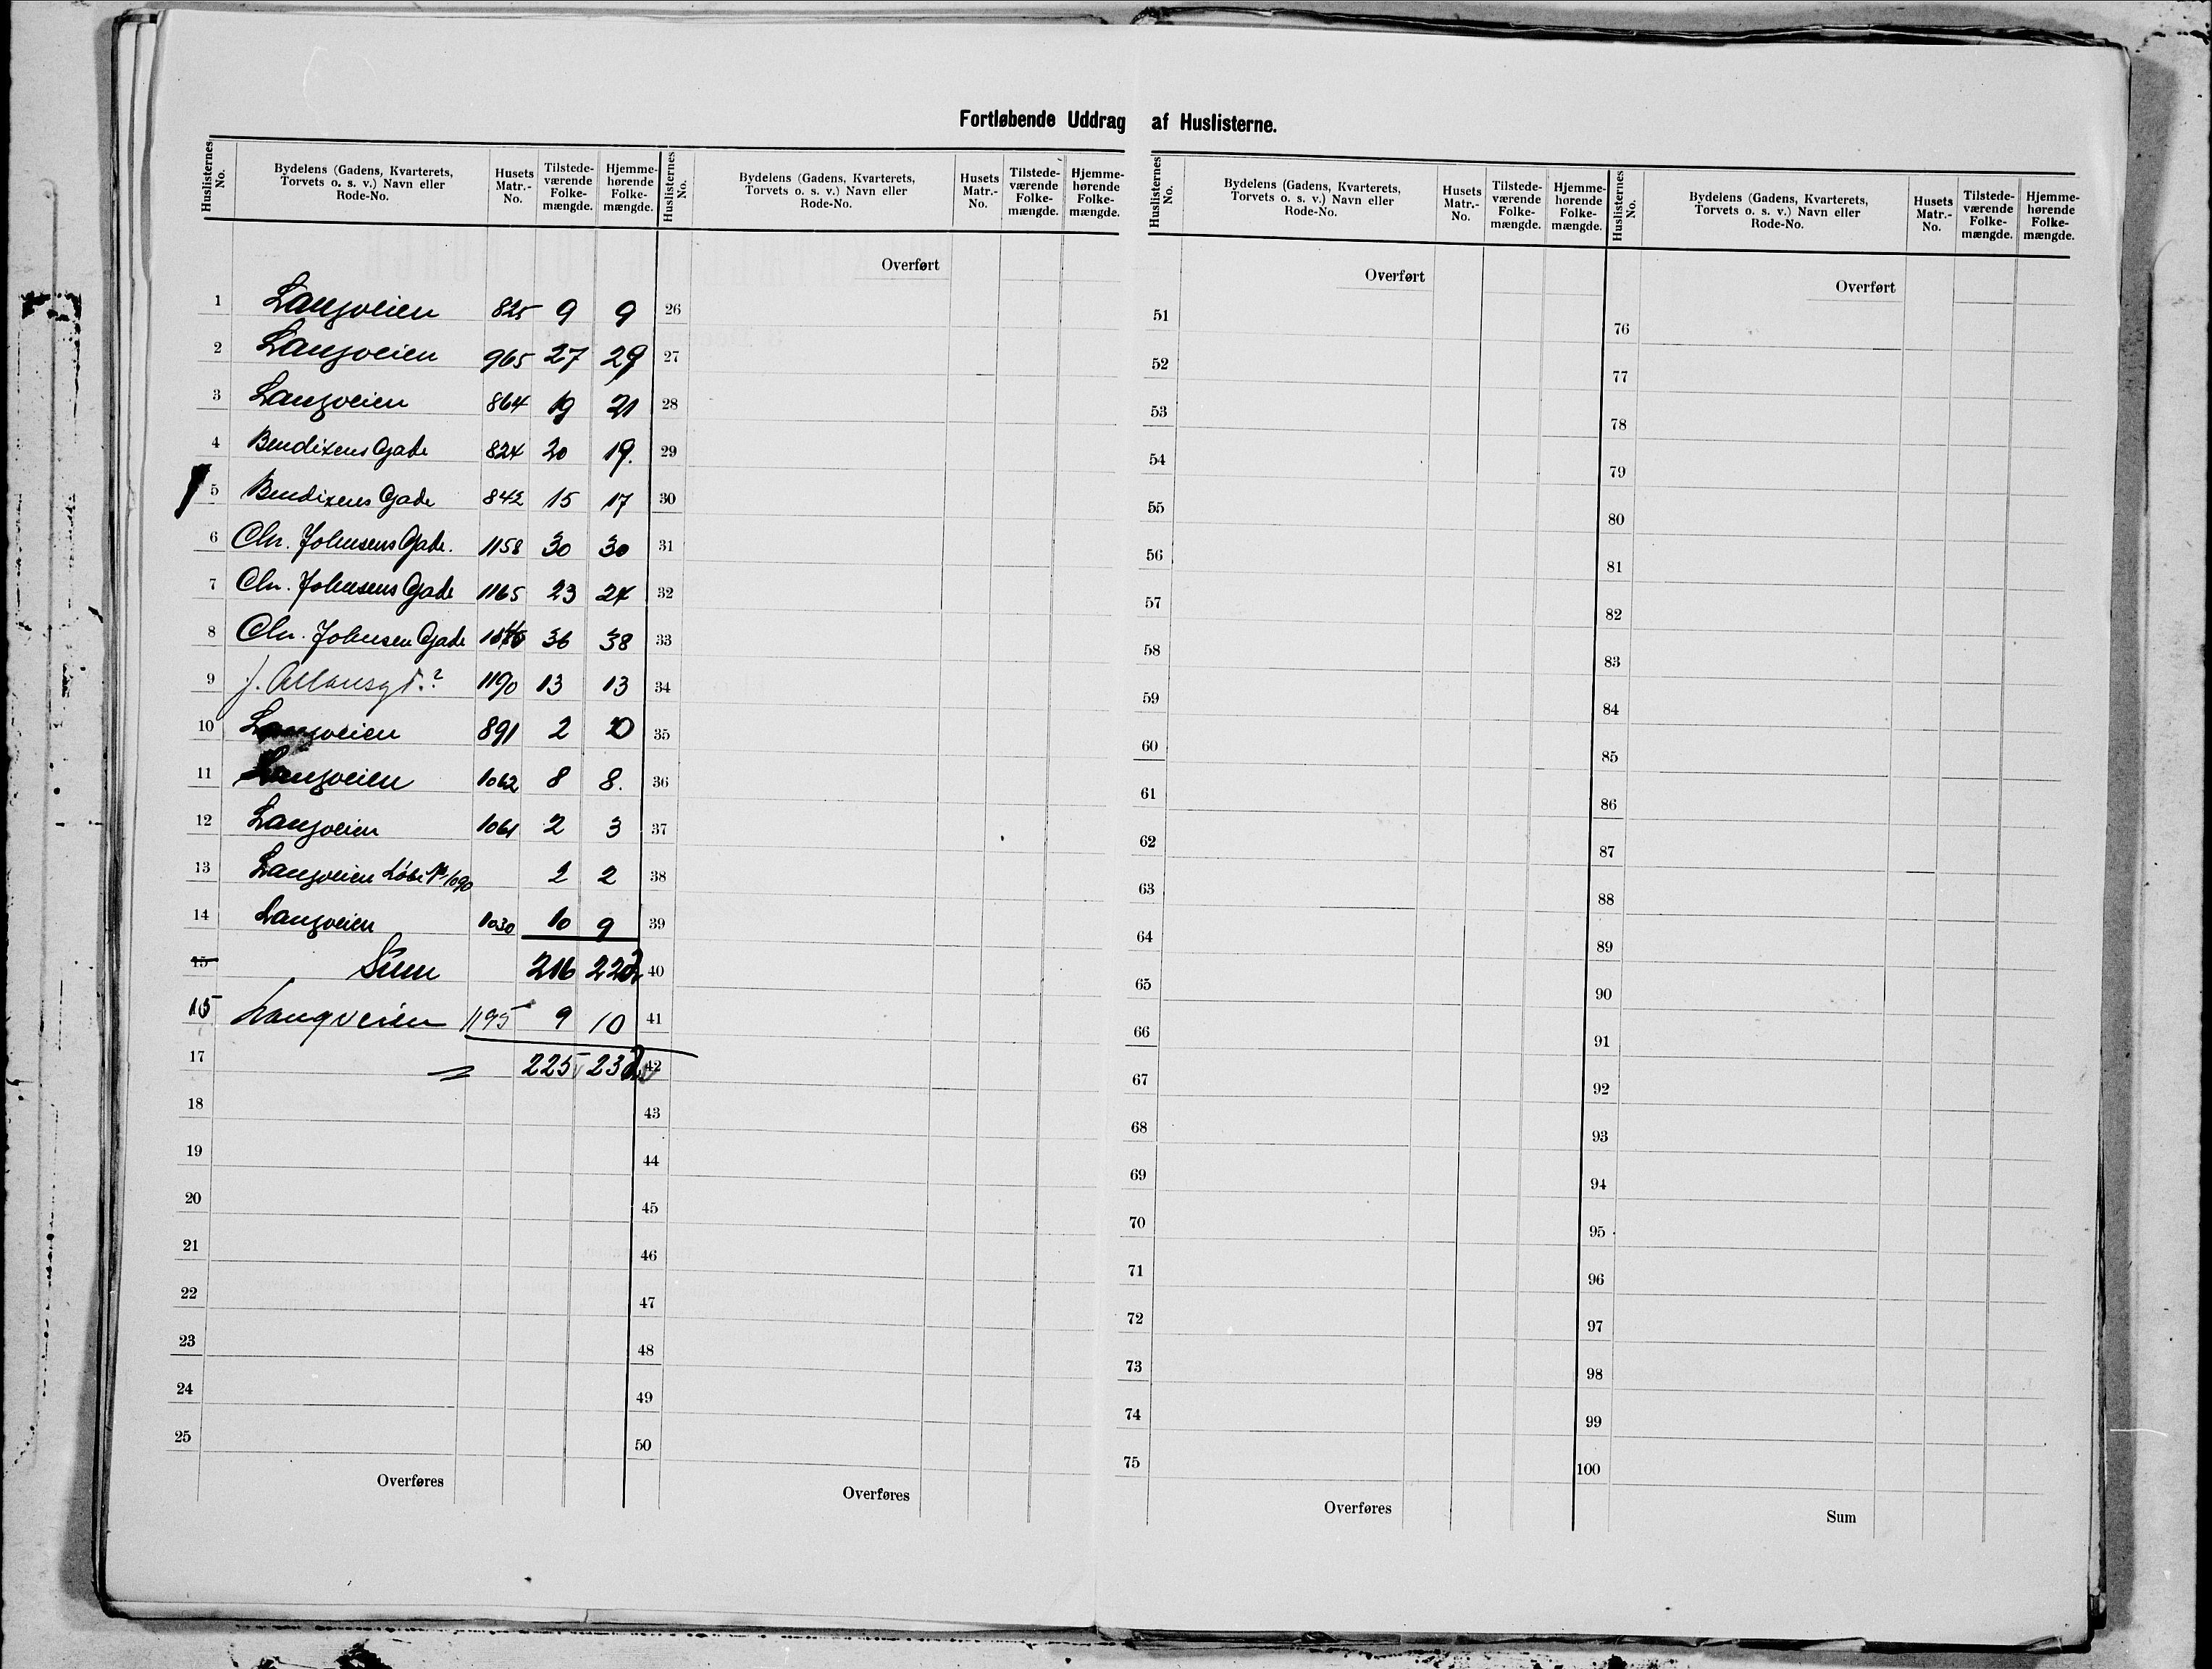 Fortløbende Uddrag af Huslisterne.
Huslisternes No. Bydelens (Gadens, Kvarterets, Torvets o. s. v.) Navn eller Rode-No. Husets Matr.-No. Tilstedeværende Folkemængde. Hjemmehørende Folkemængde.
1 Langveien 825 9 9
2 Langveien 965 27 29
3 Langveien 864 19 21
4 Bendixens Gade 824 20 19.
5 Bendixens Gade 842 15 17
6 Chr. Johnsens Gade. 1158 30 30
7 Chr. Johnsens Gade 1165 23 24
8 Chr. Johnsen Gade 36 38
9 1190 13 13
10 Langveien 891 2
11 Langveien 1062 8 8.
12 Langveien 1061 2 3
13 Langveien Løbe No 1090 2 2
14 Langveien 1030 10 9
15 Sum 216 222
15 Langveien 1195 9 10
17 225 232
18
19
20
21
22
23
24
25
Overføres
Huslisternes No. Bydelens (Gadens, Kvarterets, Torvets o. s. v.) Navn eller Rode-No. Husets Matr.-No. Tilstedeværende Folkemængde. Hjemmehørende Folkemængde.
Overført
26
27
28
29
30
31
32
33
34
35
36
37
38
39
40
41
42
43
44
45
46
47
48
49
50
Overføres
Huslisternes No. Bydelens (Gadens, Kvarterets, Torvets o. s. v.) Navn eller Rode-No. Husets Matr.-No. Tilstedeværende Folkemængde. Hjemmehørende Folkemængde.
Overført
51
52
53
54
55
56
57
58
59
60
61
62
63
64
65
66
67
68
69
70
71
72
73
74
75
Overføres
Huslisternes No. Bydelens (Gadens, Kvarterets, Torvets o. s. v.) Navn eller Rode-No. Husets Matr.-No. Tilstedeværende Folkemængde. Hjemmehørende Folkemængde.
Overført
76
77
78
79
80
81
82
83
84
85
86
87
88
89
90
91
92
93
94
95
96
97
98
99
100
Sum